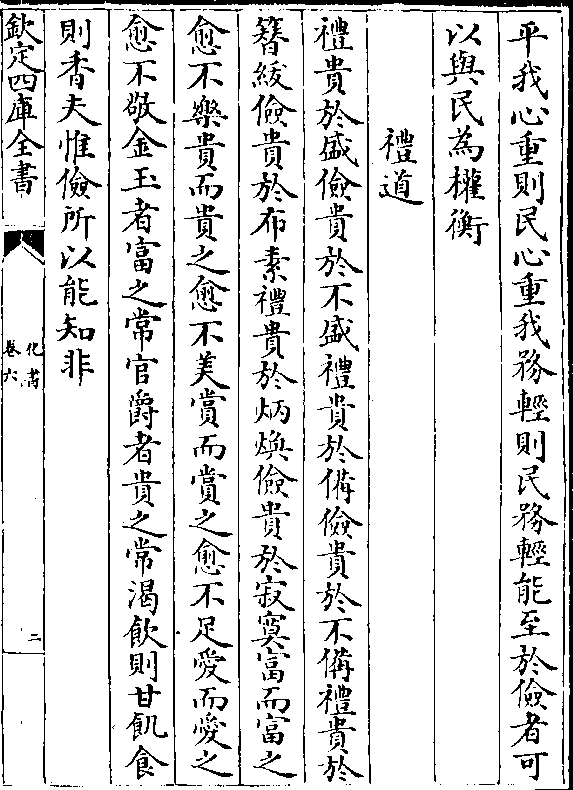 平我心重則民心重我務輕則民務輕能至於儉者可
以與民為權衡
禮道
禮貴於盛儉貴於不盛禮貴於備儉貴於不備禮貴於
簪紱儉貴於布素禮貴於炳煥儉貴於寂寞富而富之
愈不樂貴而貴之愈不美賞而賞之愈不足愛而愛之
愈不敬金玉者富之常官爵者貴之常渴飲則甘飢食
則香夫惟儉所以能知非
欽定四庫全書
化書
卷六
二